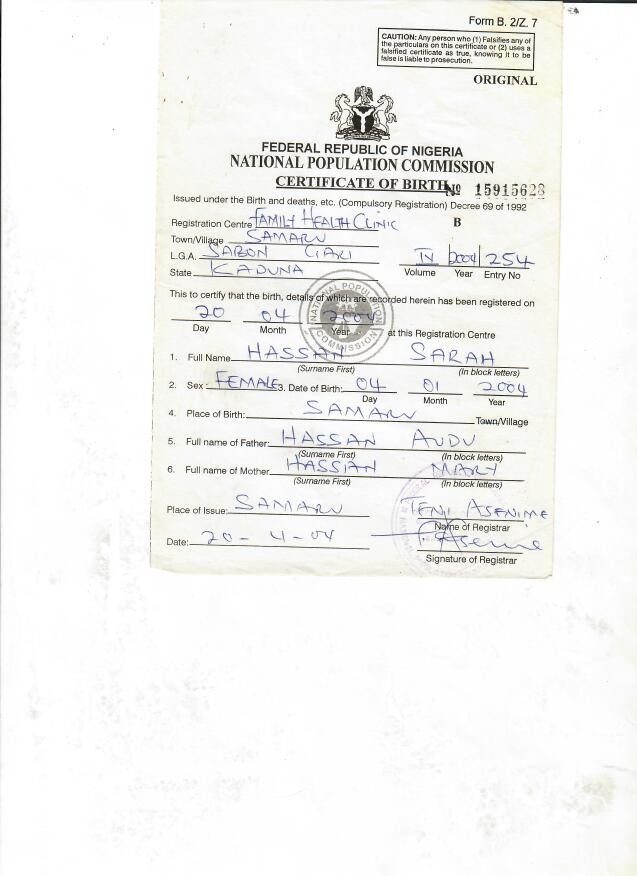 Form B. 2/Z. 7
CAUTION: Any person who (1) Falsifies any of
the particulars on this certificate or (2) uses a
falsified certificate as true, knowing it to be
false is liable to prosecution.
ORIGINAL
FEDERAL REPUBLIC OF NIGERIA
NATIONAL POPULATION COMMISSION
CERTIFICATE OF BIRTH № 15915628
Issued under the Birth and deaths, etc. (Compulsory Registration) Decree 69 of 1992
Registration Centre FAMILY HEALTH CLINIC B
Town/Village SAMARU
L.G.A. SABON GARI IV 2004 254
State KADUNA Volume Year Entry No
This to certify that the birth, details of which are recorded herein has been registered on
20 04 2004
Day Month Year at this Registration Centre
NATIONAL POPULATION COMMISSION
1. Full Name HASSAN SARAH
(Surname First) (In block letters)
2. Sex: FEMALE 3. Date of Birth: 04 01 2004
Day Month Year
4. Place of Birth: SAMARU Town/Village
5. Full name of Father: HASSAN AUDU
(Surname First) (In block letters)
6. Full name of Mother HASSAN MARY
(Surname First) (In block letters)
Place of Issue: SAMARU TENI ASENIME
Name of Registrar
Date: 20-4-04
Signature of Registrar